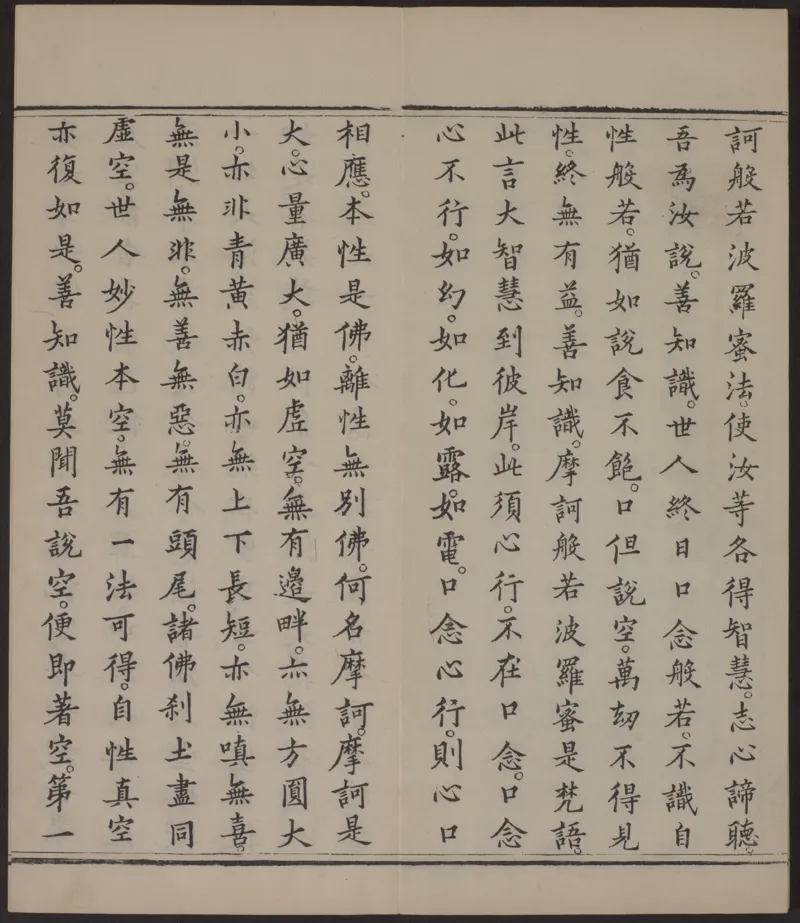 訶般若波羅蜜法。使汝等各得智慧。志心諦聽。
吾爲汝說。善知識。世人終日口念般若。不識自
性般若。猶如說食不飽。口但說空。萬劫不得見
性。終無有益。善知識。摩訶般若波羅蜜是梵語。
此言大智慧到彼岸。此須心行。不在口念。口念
心不行。如幻。如化。如露。如電。口念心行。則心口
相應。本性是佛。離性無別佛。何名摩訶。摩訶是
大。心量廣大。猶如虛空。無有邊畔。亦無方圓大
小。亦非青黃赤白。亦無上下長短。亦無嗔無喜。
無是無非。無善無惡。無有頭尾。諸佛刹土盡同
虛空。世人妙性本空。無有一法可得。自性真空
亦復如是。善知識。莫聞吾說空。便即著空。第一